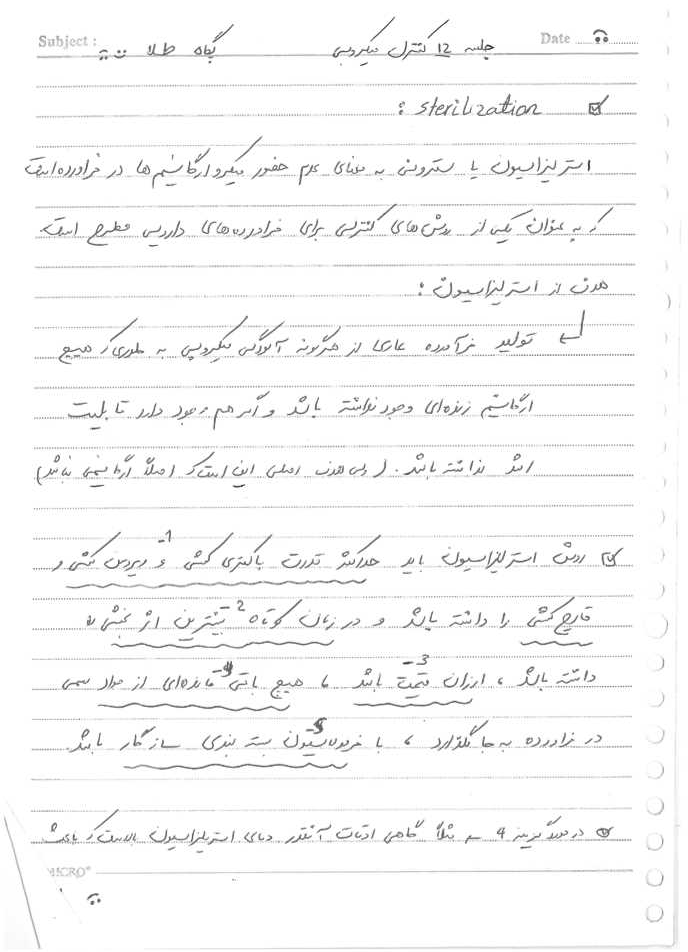 Subject : پگاه طلا جلسه 12 کنترل میکروبی Date
sterilization :
استریلیزاسیون یا سترونی به معنای عدم حضور میکروارگانیسم ها در فراورده است
که به عنوان یکی از روش های کنترلی برای فراورده های دارویی مطرح است.
هدف از استریلیزاسیون :
تولید فرآورده عاری از هرگونه آلودگی میکروبی به طوری که هیچ
ارگانیسم زنده ای وجود نداشته باشد و اگر هم وجود دارد قابلیت
رشد نداشته باشد. (ولی هدف اصلی این است که اصلاً ارگانیسمی نباشد)
روش استریلیزاسیون باید حداکثر قدرت باکتری کشی 1- و ویروس کشی و
قارچ کشی را داشته باشد و در زمان کوتاه 2 بیشترین اثر بخشی را
داشته باشد ، ارزان قیمت 3- باشد ، هیچ باقی 4- مانده ای از مواد سمی
در فراورده به جا نگذارد ، با فرمولاسیون 5- بسته بندی سازگار باشد.
در مورد گزینه 4 مثلاً گاهی اوقات آنقدر دمای استریلیزاسیون بالاست که باعث
MICRO